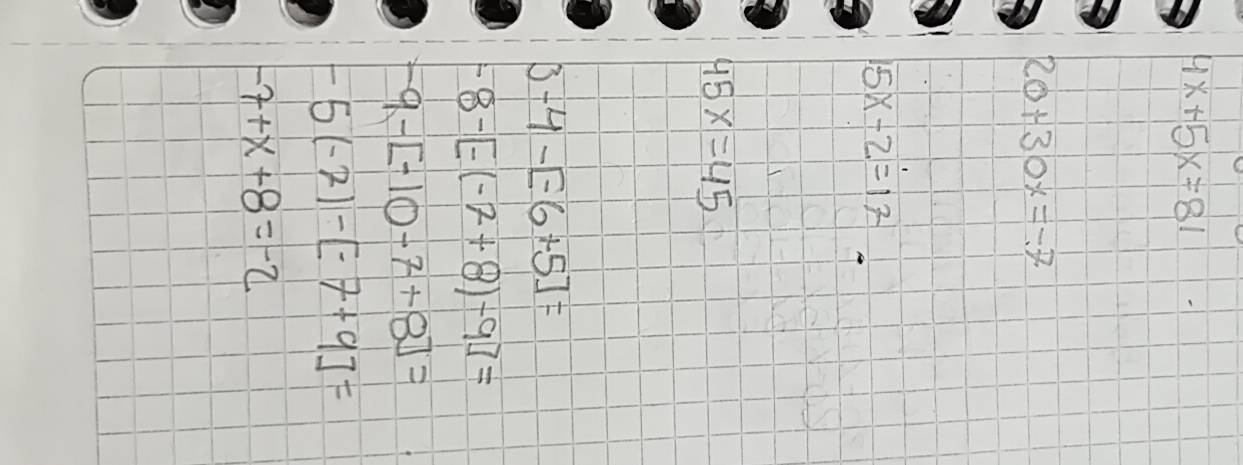 4x+5x=81
20+30x=-7
15x-2=17
45x=45
3-4-[-6+5]=
-8-[-(-7+8)-9]=
-9-[-10-7+8]=
-5(-7)-[-7+9]=
-7+x+8=-2